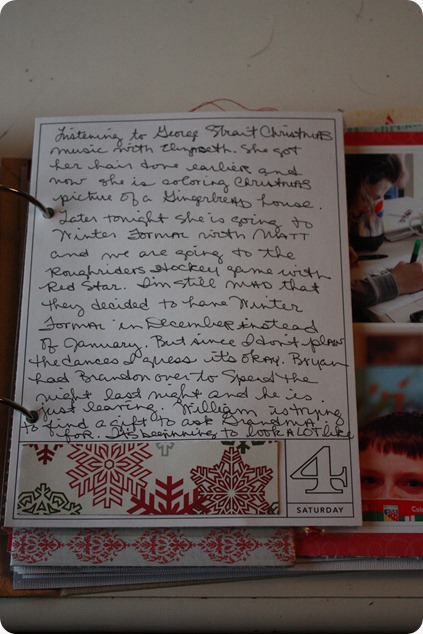 Listening to George Strait Christmas
music with Elizabeth. She got
her hair done earlier and
now she is coloring Christmas
picture of a Gingerbread house.
Later tonight she is going to
Winter Formal with Matt
and we are going to the
Roughriders Hockey game with
Red Star. I'm still mad that
they decided to have Winter
Formal in December instead
of January. But since I don't plan
the dances I guess it's okay. Bryan
had Brandon over to spend the
night last night and he is
just leaving. William is trying
to find a gift to ask Grandma
for. It's beginning to look a lot like
4
SATURDAY